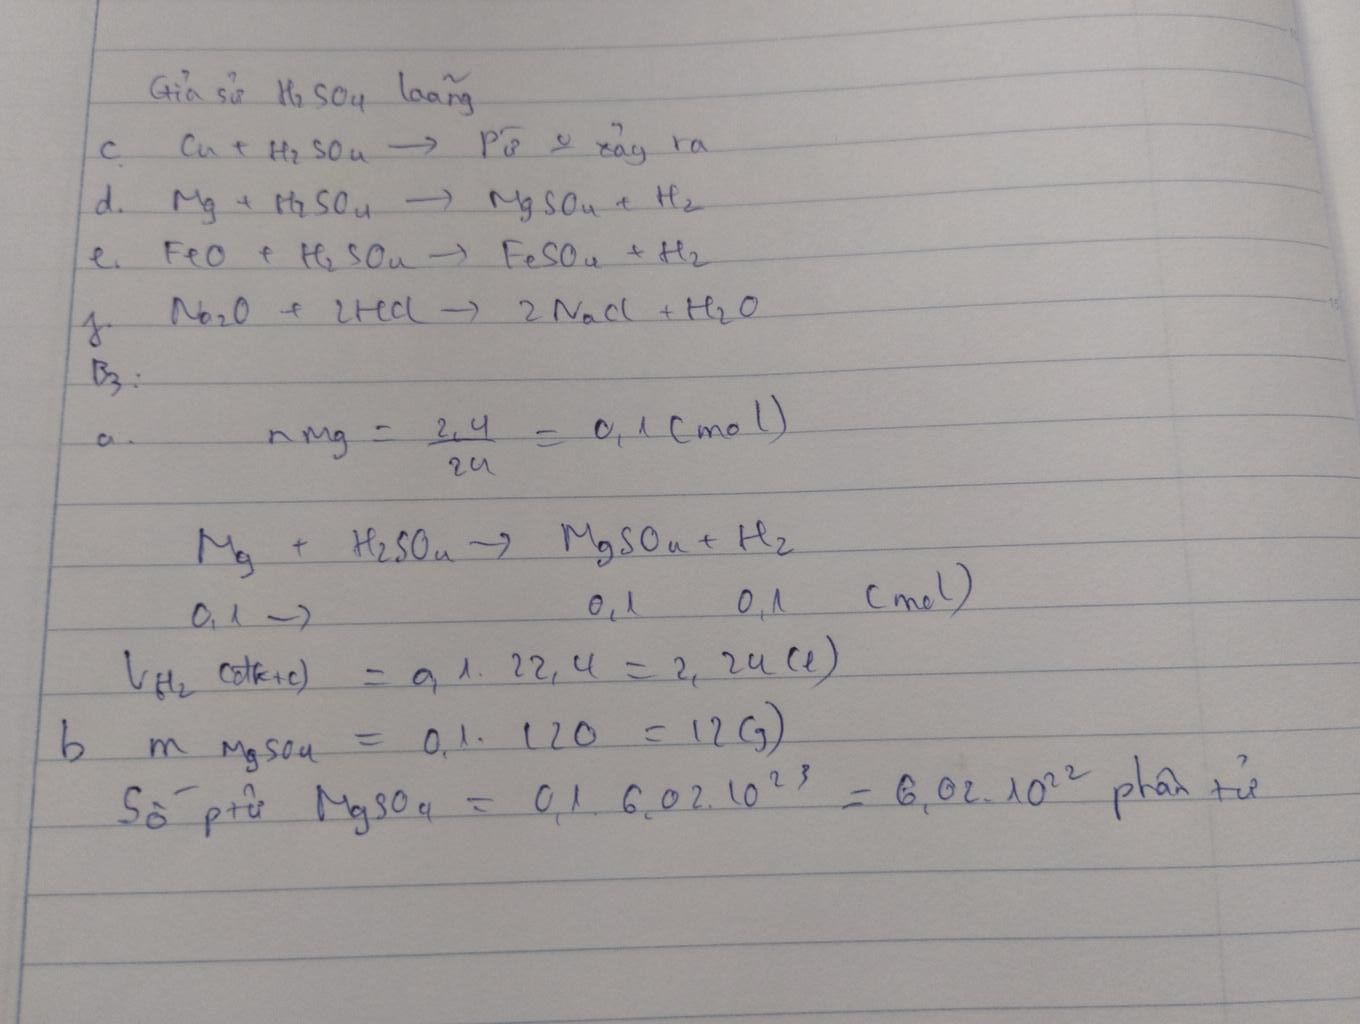 Giả sử H2SO4 loãng
c. Cu + H2SO4 → Pứ k xảy ra
d. Mg + H2SO4 → MgSO4 + H2
e. FeO + H2SO4 → FeSO4 + H2
f. Na2O + 2HCl → 2NaCl + H2O
B3:
a. nMg = 2,4/24 = 0,1 (mol)
Mg + H2SO4 → MgSO4 + H2
0,1 → 0,1 0,1 (mol)
VH2 (đktc) = 0,1. 22,4 = 2,24 (l)
b m MgSO4 = 0,1. 120 = 12 (g)
Số ptử MgSO4 = 0,1. 6,02.10²³ = 6,02.10²² phân tử